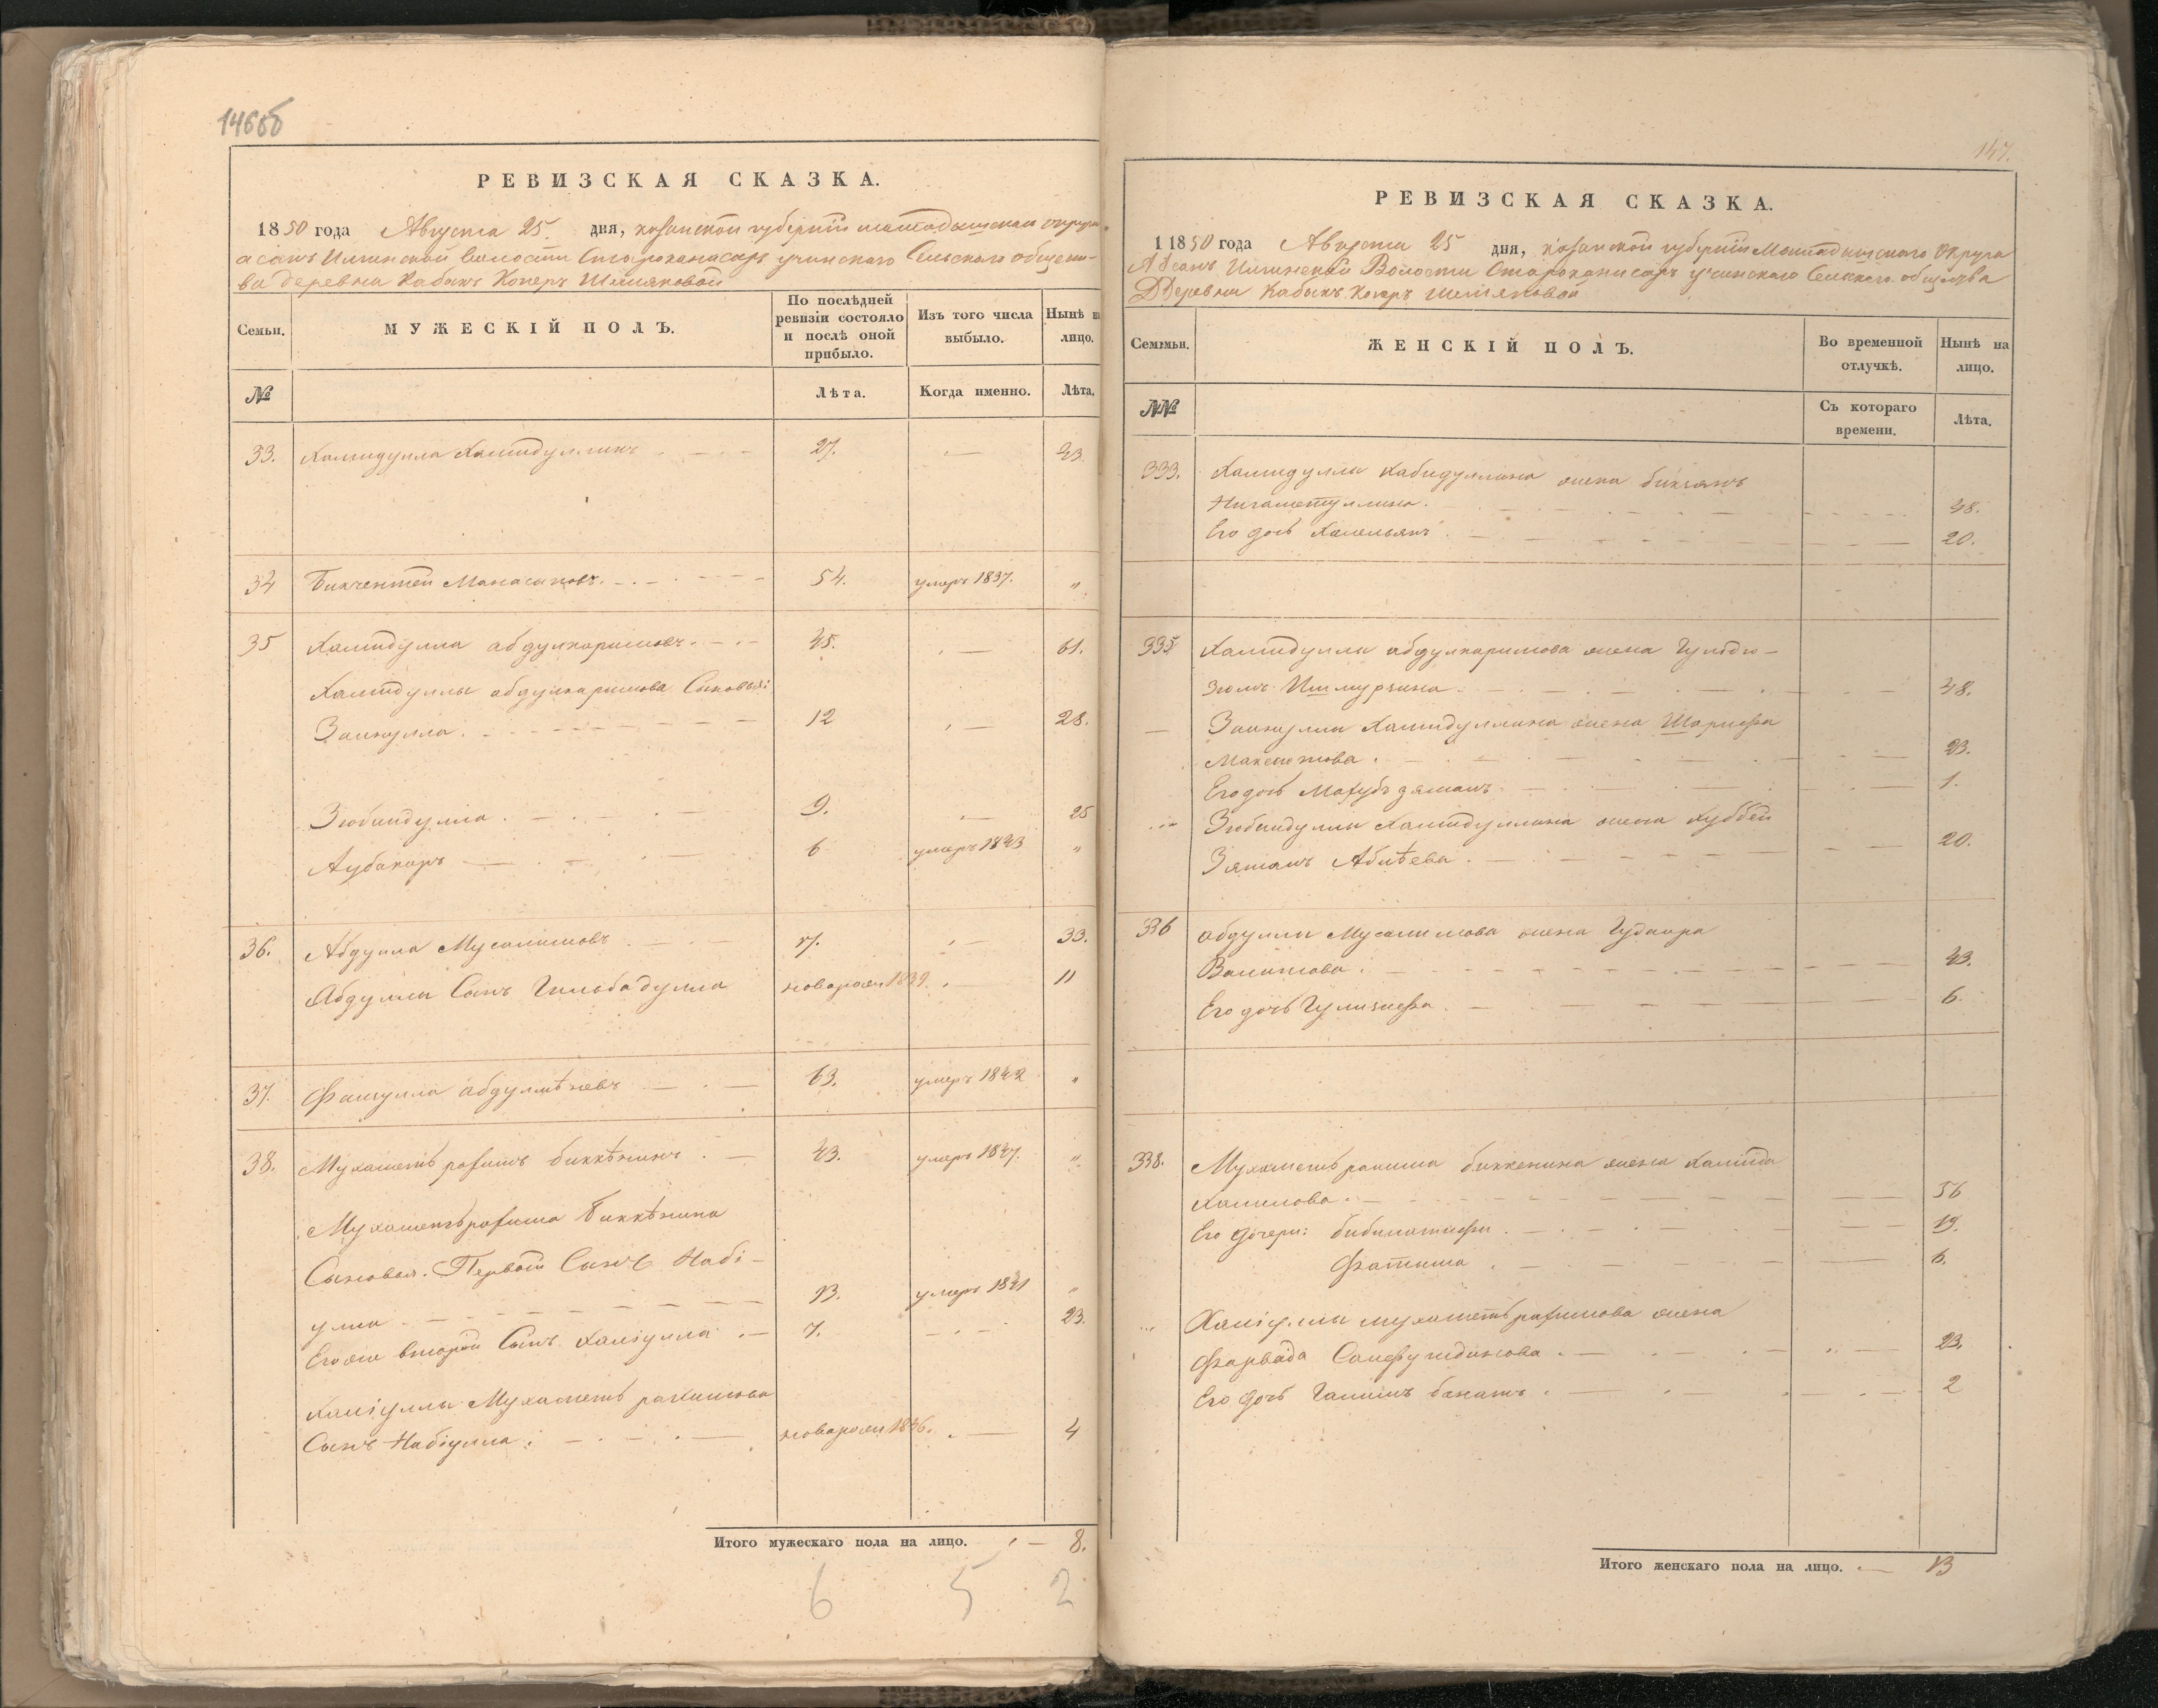 146об
РЕВИЗСКАЯ СКАЗКА.
1850 года Августа 25 дня, казанской губерніи мамадышскаго округа
волости Сельскаго общест-
ва деревни Кабакъ Коперъ Шемяковой
Семьи.
МУЖЕСКІЙ ПОЛЪ.
По послѣдней ревизіи состояло и послѣ оной прибыло.
Изъ того числа выбыло.
Нынѣ на лицо.
№
Лѣта.
Когда именно.
Лѣта.
33. Хамидулла 27. — 43
34 Бикчентей Манасаповъ. 54. умеръ 1837. „
35 Хамидулла абдулкаримовъ. 45. — 61.
Хамидуллы абдулкаримова Сыновья:
Зайнулла. 12 — 28.
Зюбаидулла. 9. — 25
Аубакиръ 6 умеръ 1843 „
36. Абдулла Мусалимовъ 17. — 33.
Абдуллы Сынъ Гильбадулла новорож 1839. — 11
37. абдулмѣневъ 63. умеръ 1842 „
38. Мухаметь рахимъ биккѣнинъ. 43. умеръ 1847. „
Мухаметьрахима Биккѣнина
Сыновья. Первой Сынъ Набі-
улла 13. умеръ 1841 „
Егоже второй Сынъ Халіулла. 7. — 23.
Халіуллы Мухаметь рахимова
Сынъ Набіулла: новорож 1846. — 4
Итого мужескаго пола на лицо. — 8.
6 5 2
147.
РЕВИЗСКАЯ СКАЗКА.
1 1850 года Августа 25 дня, казанской губерніи Мамадышскаго Округа
Волости Сельскаго общества
Деревни Кабыкъ Коперъ Шемяковой
Семемьи.
ЖЕНСКІЙ ПОЛЪ.
Во временной отлучкѣ.
Нынѣ на лицо.
№№
Съ котораго времени.
Лѣта.
333. Хамидуллы Хабидуллина жена бикчянъ
Нигаметуллина. — 48.
Его дочь — 20.
335 Хамидуллы абдулкаримова жена Гульбю-
зюмъ Ишмурзина. — 48.
— Зайнуллы Хамидуллина жена Шарифа
Максютова. — 23.
Его дочь Махубъ зяманъ. — 1.
Зюбаидуллы Хамидуллина жена Хуббей
Зяманъ Абнѣева. — 20.
336 Абдуллы Мусалимова жена Гудаира
Валитова. — 43.
Его дочь Гулизифа. — 6.
338. Мухаметь рахима биккенина жена Хамида
Халилова. — 56
Его дочери: — 19.
Фатима — 6.
Халіуллы мухаметь рахимова жена
Фарвада — 23.
Его дочь банатъ. — 2
Итого женскаго пола на лицо. — 13